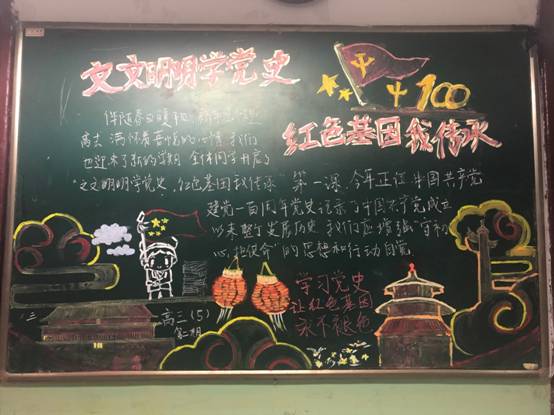 文文明明学党史
100
红色基因我传承
伴随春日暖
离去 满怀着喜悦的心情 我们
也迎来了新的学期 全体同学开启了
"文文明明学党史,红色基因我传承"第一课,今年正值中国共产党
建党一百周年党史记录了中国共产党成立
以来整个发展历史 我们应增强"守初
心、担使命"的思想和行动自觉
学习党史
让红色基因
永不褪色
高三(5)
第二期